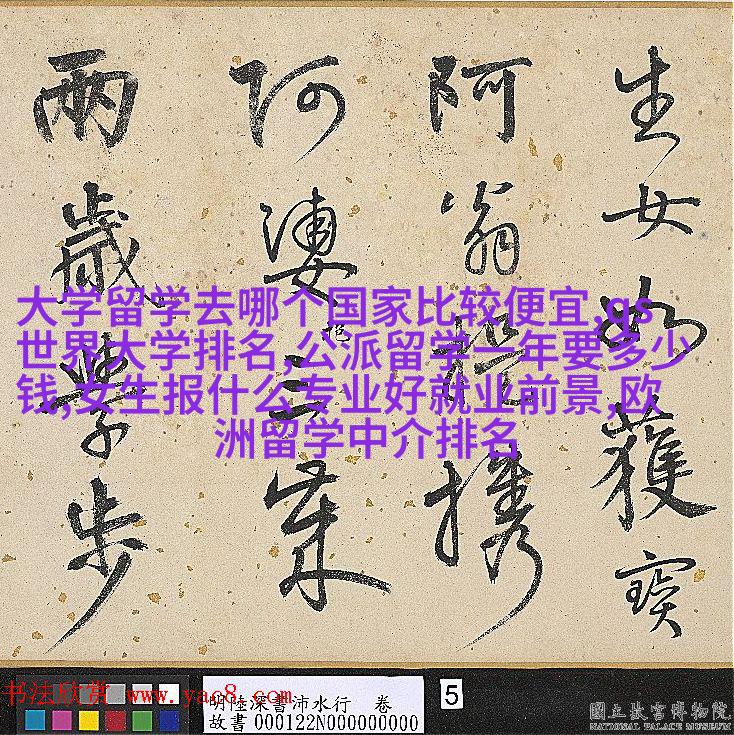 生女如獲寶
阿翁提携
阿婆抱三
兩歲學步
大学留学去哪个国家比较便宜,qs
世界大学排名,公派留学一年要多少
钱,女生报什么专业好就业前景,欧
洲留学中介排名
书法欣赏 www.yac8.com
明陸深書沛水行 卷
故書000122N000000000
5
國立故宮博物院
NATIONAL PALACE MUSEUM